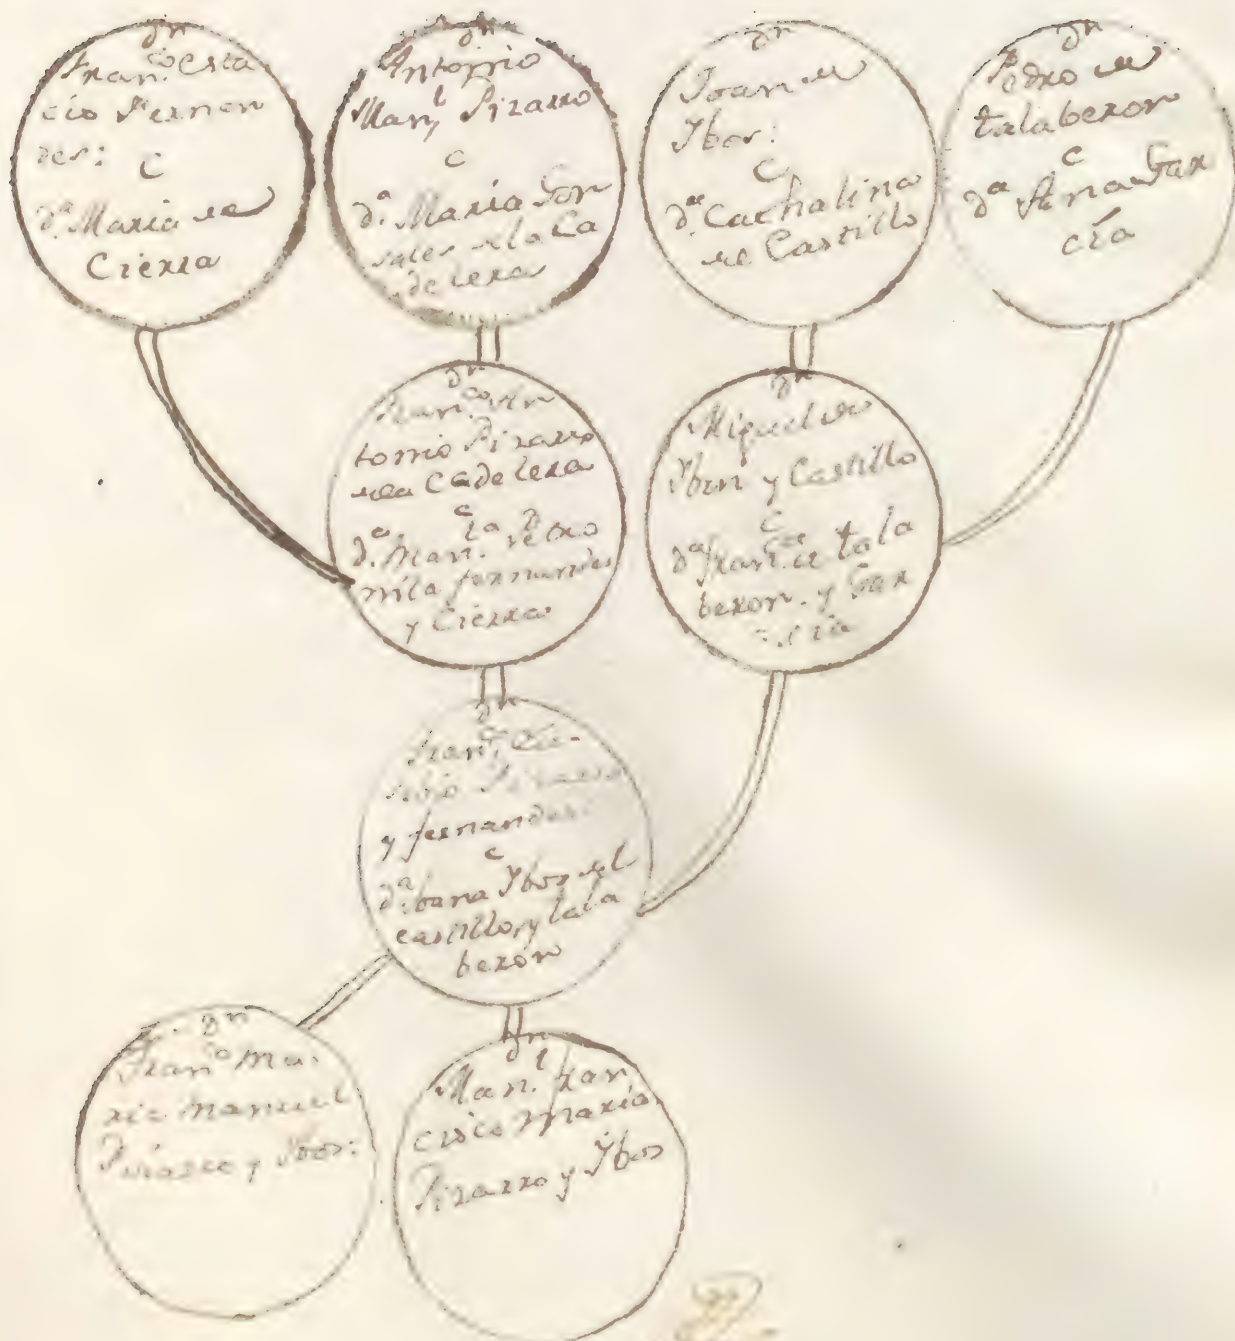 dn
Fran.co Esta
cio Fernan
des:
C
d.a Maria de
Cierra
dn
Antonio
Man.l Pizarro
C
d.a Maria Gon
sales de la Ca
delera
dn
Joan de
Ybor:
C
d.a Cathalina
de Castillo
dn
Pedro de
talaberon
C
d.a Ana Gar
cía
dn
Fran.co An
tonio Pizarro
de la Cadelera
C
d.a Man.la Petro
nila fernandes
y Cierra
dn
Miguel de
Ybor y Castillo
C
d.a Fran.ca de tala
beron. y Gar
cía
dn
Fran.co
Pizarro
y fernandes:
C
d.a Joana Ybor del
castillo, y tala
berón
dn
Fran.co Ma
ria Manuel
Pizarro y Ybor:
dn
Man.l Fran
cisco Maria
Pizarro y Ybor